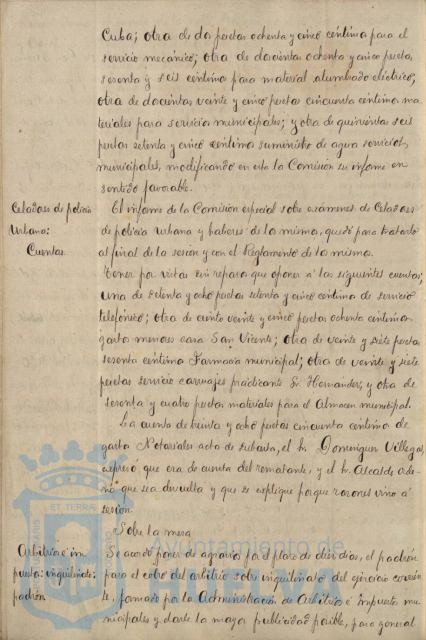 Cuba; otra de dos pesetas ochenta y cinco céntimos para el
servicio mecánico; otra de doscientas ochenta y cinco pesetas
sesenta y seis céntimos para material alumbrado eléctrico;
otra de doscientas veinte y cinco pesetas cincuenta céntimos ma-
teriales para servicios municipales; y otra de quinientas seis
pesetas setenta y cinco céntimos suministro de agua servicios
municipales, modificando en esto la Comisión su informe en
sentido favorable.
Celadores de policía
Urbana:
Cuentas.
El informe de la Comisión especial sobre exámenes de Celadores
de policía urbana y haberes de la misma, quedó para tratarlo
al final de la sesión y con el Reglamento de la misma.
Tener por vistas sin reparo que oponer a las siguientes cuentas;
una de setenta y ocho pesetas setenta y cinco céntimos de servicio
telefónico; otra de ciento veinte y cinco pesetas ochenta céntimos
gastos menores casa San Vicente; otra de veinte y siete pesetas
sesenta céntimos Farmacia municipal; otra de veinte y siete
pesetas servicio carruajes practicante Sr. Hernandez, y otra de
sesenta y cuatro pesetas materiales para el Almacen municipal.
La cuenta de treinta y ocho pesetas cincuenta céntimos de
gastos Notariales acta de subasta, el Sr. Dominguez Villegas,
expresó que era de cuenta del rematante, y el Sr. Alcalde orde-
nó que sea devuelta y que se explique porque razones vino a
sesión.
Sobre la mesa
Arbitrios é im
puestos: inquilinato:
padrón
Se acordó poner de agravios por el plazo de diez días, el padrón
para el cobro del arbitrio sobre inquilinato del ejercicio corrien-
te, formado por la Administración de Arbitrios é impuestos mu-
nicipales y darle la mayor publicidad posible, para general
ET TERRA
Ayuntamiento de